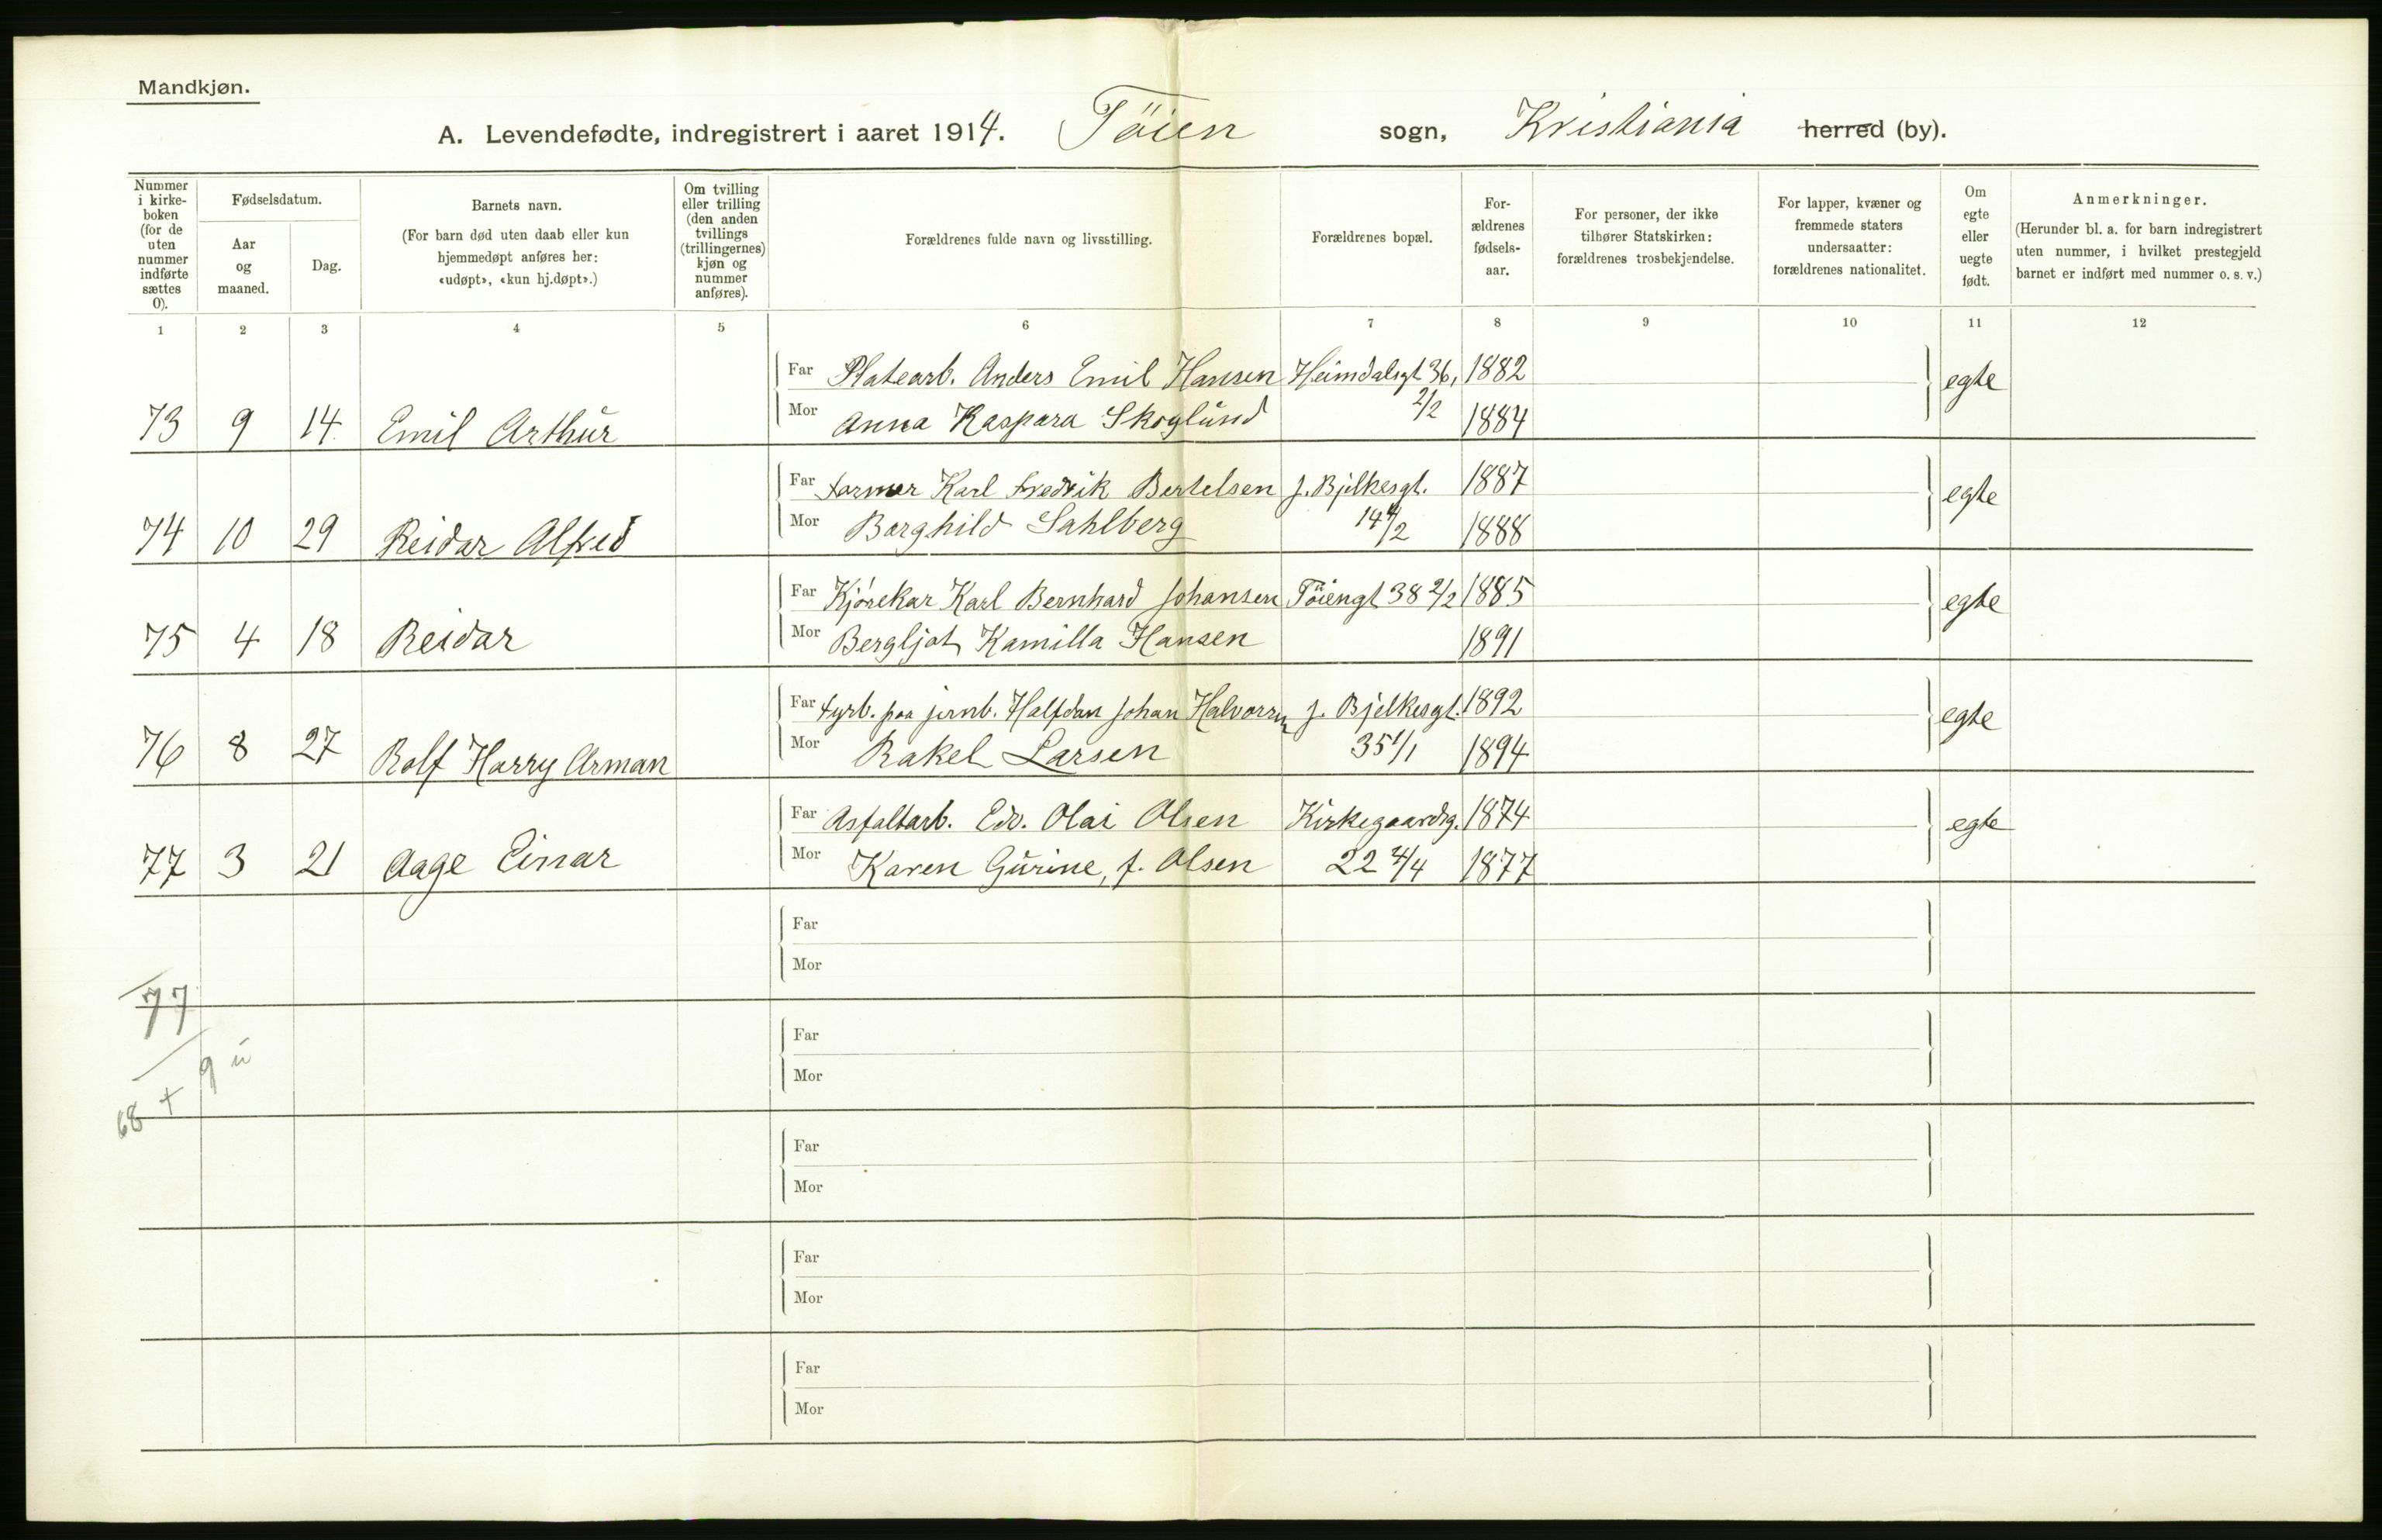 Mandkjøn.
A. Levendefødte, indregistrert i aaret 1914. Töien sogn, Kristiania herred (by).
Nummer i kirke-boken (for de uten nummer indførte sættes 0).
Fødselsdatum.
Aar og maaned.
Dag.
Barnets navn.
(For barn død uten daab eller kun hjemmedøpt anføres her: «udøpt», «kun hj.døpt».)
Om tvilling eller trilling (den anden tvillings (trillingernes) kjøn og nummer anføres).
Forældrenes fulde navn og livsstilling.
Forældrenes bopæl.
For-ældrenes fødsels-aar.
For personer, der ikke tilhører Statskirken: forældrenes trosbekjendelse.
For lapper, kvæner og fremmede staters undersaatter: forældrenes nationalitet.
Om egte eller uegte født.
Anmerkninger.
(Herunder bl. a. for barn indregistrert uten nummer, i hvilket prestegjeld barnet er indført med nummer o. s. v.)
1 2 3 4 5 6 7 8 9 10 11 12
Far Platearb. Anders Emil Hansen Heimdalsgt 36, 1882 egte
73 9 14 Emil Arthur Mor Anna Kaspara Skoglund 2/2 1884
Far Former Karl Fredrik Bertelsen J. Bjelkesgt. 1887 egte
74 10 29 Reidar Alfred Mor Borghild Sahlberg 14 4/2 1888
Far Kjörekar Karl Bernhard Johansen Töiengt 38 2/2 1885 egte
75 4 18 Reidar Mor Bergljot Kamilla Hansen 1891
Far Fyrb. paa jernb. Halfdan Johan Halvorsen J. Bjelkesgt. 1892 egte
76 8 27 Rolf Harry Arman Mor Rakel Larsen 35 1/1 1894
Far Asfaltarb. Edv. Olai Olsen Kirkegaardsg. 1874 egte
77 3 21 Aage Einar Mor Karen Gurine, f. Olsen 22 4/4 1877
Far
Mor
77
Far
9 u
Mor
68 +
Far
Mor
Far
Mor
Far
Mor